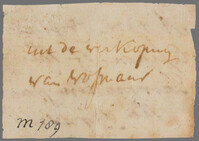 uit de verkoping
van
M 189